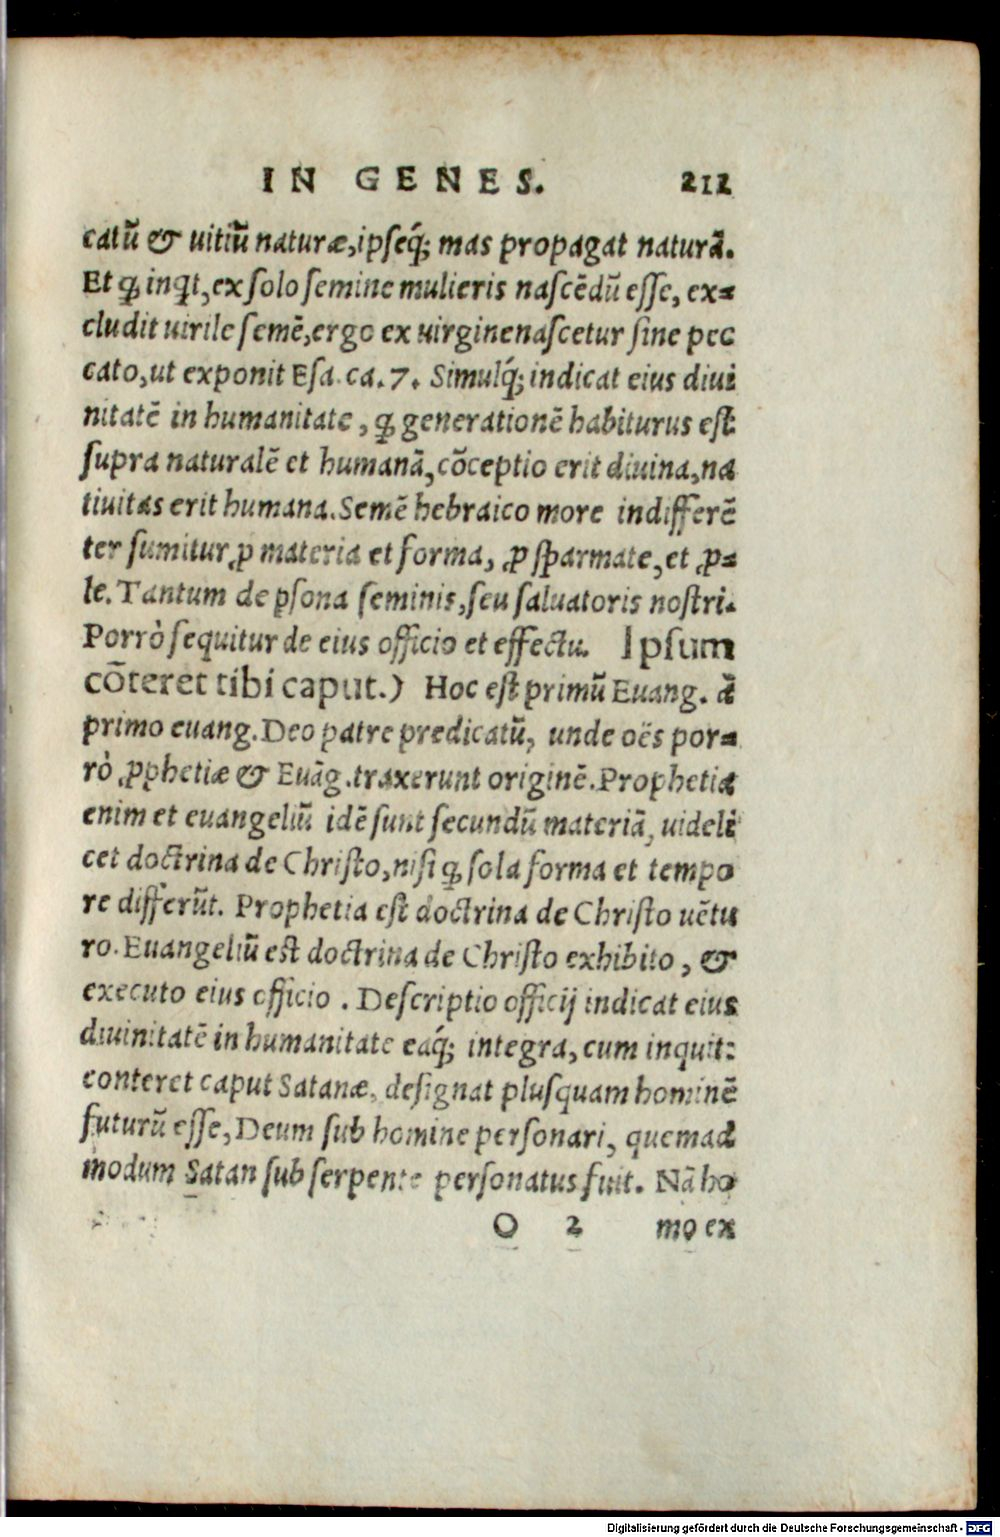 IN GENES. 212
catũ & uitiũ naturæ, ipseq́; mas propagat naturã.
Et ꝙ inqͥt, ex solo semine mulieris nascẽdũ esse, ex⸗
cludit uirile semẽ, ergo ex uirgine nascetur sine pec
cato, ut exponit Esa. ca. 7. Simulq́; indicat eius diui
nitatẽ in humanitate, ꝙ generationẽ habiturus est
supra naturalẽ et humanã, cõceptio erit diuina, na
tiuitas erit humana. Semẽ hebraico more indifferẽ
ter sumitur, ꝓ materia et forma, ꝓ sꝑmate, et ꝓ⸗
le. Tantum de ꝑsona seminis, seu saluatoris nostri.
Porrò sequitur de eius officio et effectu. Ipsum
cõteret tibi caput.) Hoc est primũ Euang. ã
primo euang. Deo patre predicatũ, unde oẽs por⸗
rò ꝓphetiæ & Euãg. traxerunt originẽ. Prophetia
enim et euangeliũ idẽ sunt secundũ materiã, uideli
cet doctrina de Christo, nisi ꝙ sola forma et tempo
re differũt. Prophetia est doctrina de Christo uẽtu
ro. Euangeliũ est doctrina de Christo exhibito, &
executo eius officio. Descriptio officij indicat eius
diuinitatẽ in humanitate eaq́; integra, cum inquit:
conteret caput Satanæ, designat plusquam hominẽ
futurũ esse, Deum sub homine personari, quemad
modum Satan sub serpente personatus fuit. Nã ho
O 2 mo ex
Digitalisierung gefördert durch die Deutsche Forschungsgemeinschaft - DFG